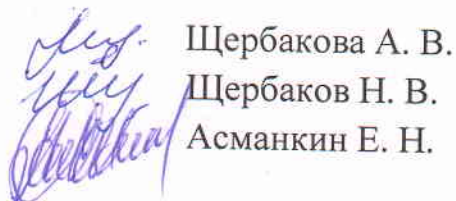 Щербакова А. В.
Щербаков Н. В.
Асманкин Е. Н.